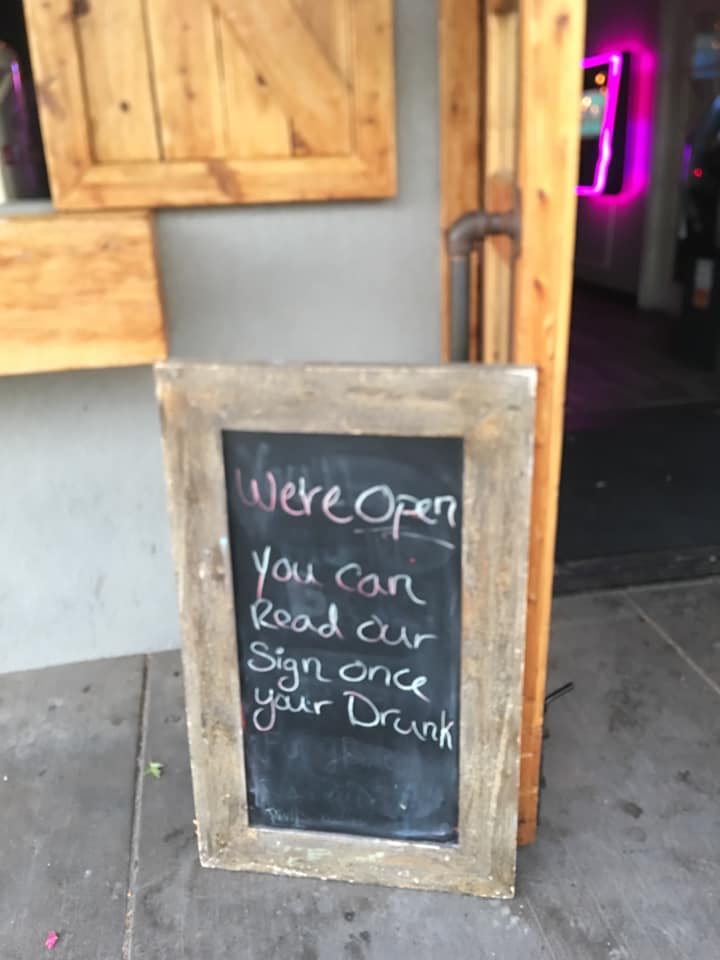 We're Open
You can
Read our
Sign once
your Drunk